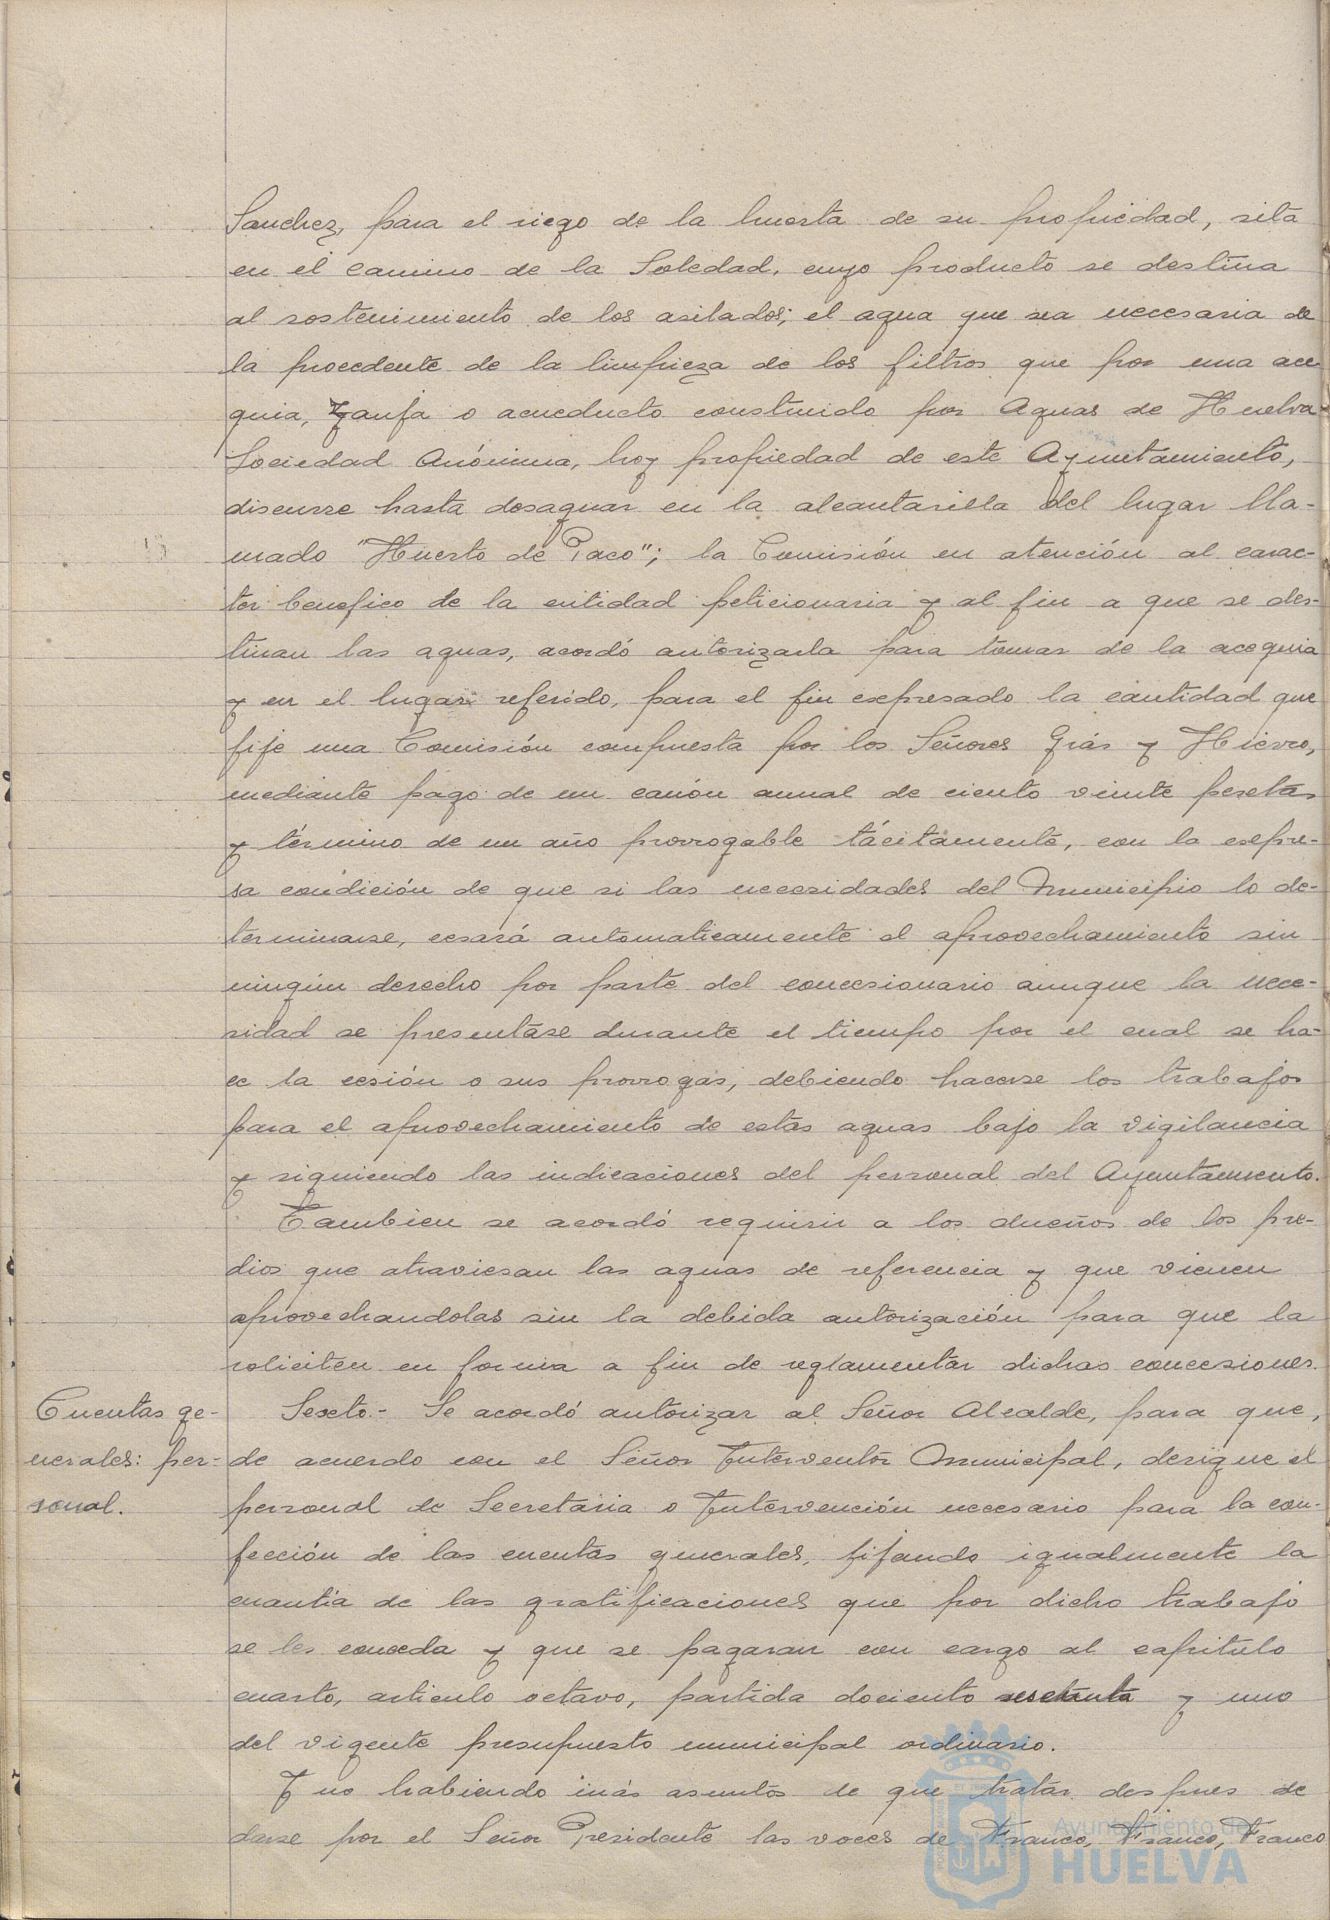 Sanchez, para el riego de la huerta de su propiedad, sita
en el camino de la Soledad, cuyo producto se destina
al sostenimiento de los asilados; el agua que sea necesaria de
la procedente de la limpieza de los filtros que por una ace
quia, zanja o acueducto construido por Aguas de Huelva
Sociedad Anónima, hoy propiedad de este Ayuntamiento,
discurre hasta desaguar en la alcantarilla del lugar lla-
mado "Huerto de Paco"; la Comisión en atención al carac-
ter benefico de la entidad peticionaria y al fin a que se des-
tinan las aguas, acordó autorizarla para tomar de la acequia
y en el lugar referido, para el fin expresado la cantidad que
fije una Comisión compuesta por los Señores Grás y Hierro,
mediante pago de un canón anual de ciento veinte pesetas
y término de un año prorrogable tácitamente, con la expre-
sa condición de que si las necesidades del Municipio lo de-
terminarse, cesará automaticamente el aprovechamiento sin
ningún derecho por parte del concesionario aunque la nece-
sidad se presentáse durante el tiempo por el cual se ha-
ce la cesión o sus prorrogas, debiendo hacerse los trabajos
para el aprovechamiento de estas aguas bajo la vigilancia
y siguiendo las indicaciones del personal del Ayuntamiento.
Tambien se acordó requirir a los dueños de los pre-
dios que atraviesan las aguas de referencia y que vienen
aprovechandolas sin la debida autorización para que la
soliciten en forma a fin de reglamentar dichas concesiones.
Cuentas ge-
nerales: per-
sonal.
Sexto.- Se acordó autorizar al Señor Alcalde, para que,
de acuerdo con el Señor Interventor Municipal, designe el
personal de Secretaria o Intervención necesario para la con-
fección de las cuentas generales, fijando igualmente la
cuantia de las gratificaciones que por dicho trabajo
se les conceda y que se pagaran con cargo al capitulo
cuarto, articulo octavo, partida dociento sesetenta y uno
del vigente presupuesto municipal ordinario.
Y no habiendo más asuntos de que tratar despues de
darse por el Señor Presidente las voces de Franco, Franco, Franco
Ayuntamiento de
HUELVA